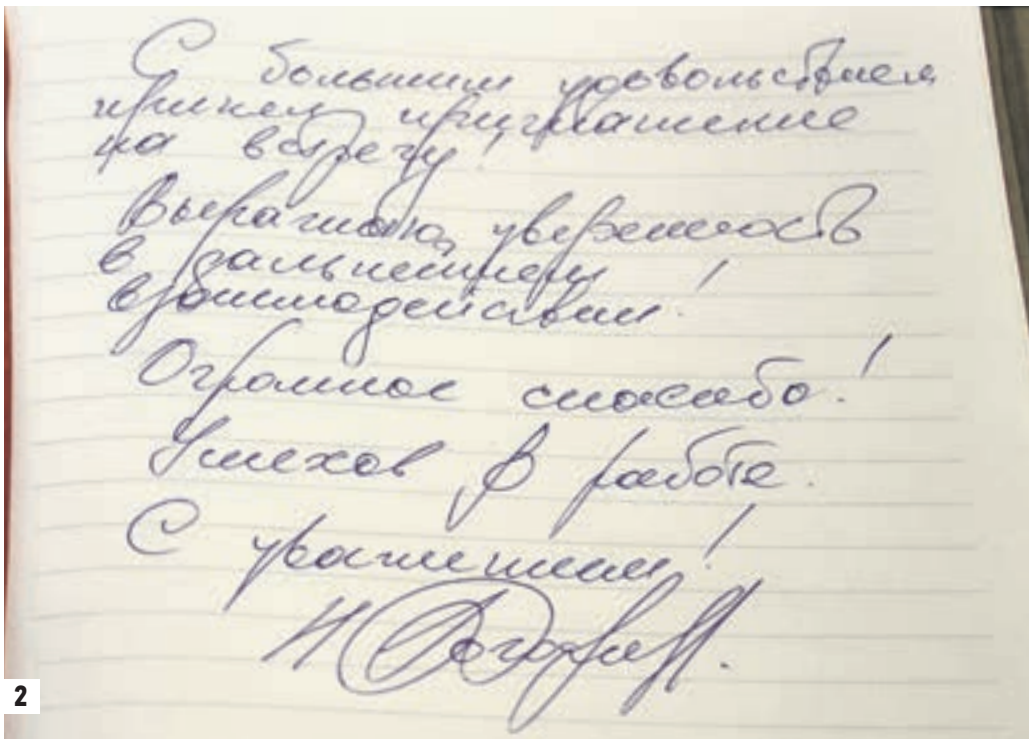 С большим удовольствием
принял приглашение
на встречу!
Выражаю уверенность
в дальнейшем
взаимодействии!
Огромное спасибо!
Успехов в работе.
С уважением!
Н
2